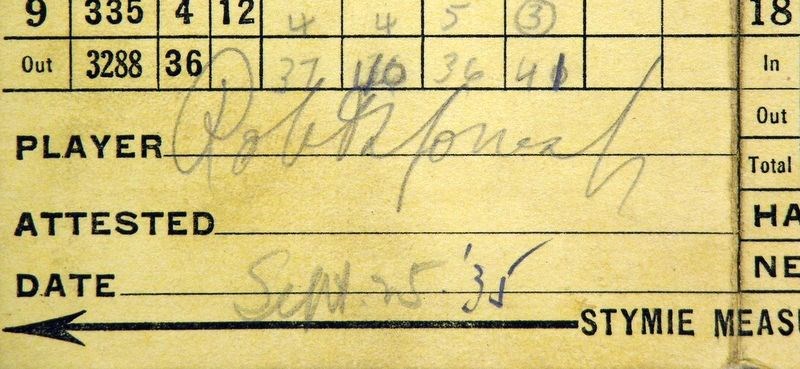 9 335 4 12 4 4 5 3 18
Out 3288 36 37 40 36 41 In
Out
PLAYER Robt T Jones Jr
Total
ATTESTED HA
DATE Sept. 25 '35 NE
STYMIE MEASU